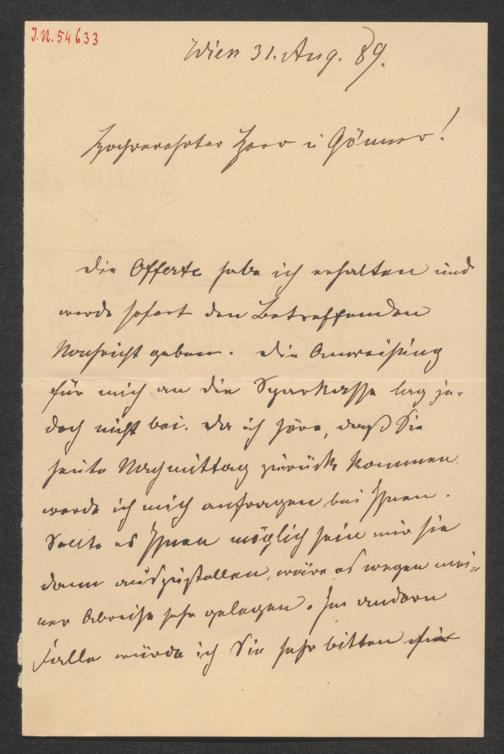 J.N. 54633
Wien 31. Aug. 89.
Hochverehrter Herr u Gönner!
Die Offerte habe ich erhalten und
werde sofort den Betreffenden
Nachricht geben. Die Anweisung
für mich an die Sparkasse lag je-
doch nicht bei. Da ich höre, daß Sie
heute Nachmittag zurück kommen
werde ich mich anfragen bei Ihnen.
Sollte es Ihnen möglich sein mir sie
dann auszustellen, wäre es wegen mei-
ner Abreise sehr gelegen. Im andern
Falle würde ich Sie sehr bitten